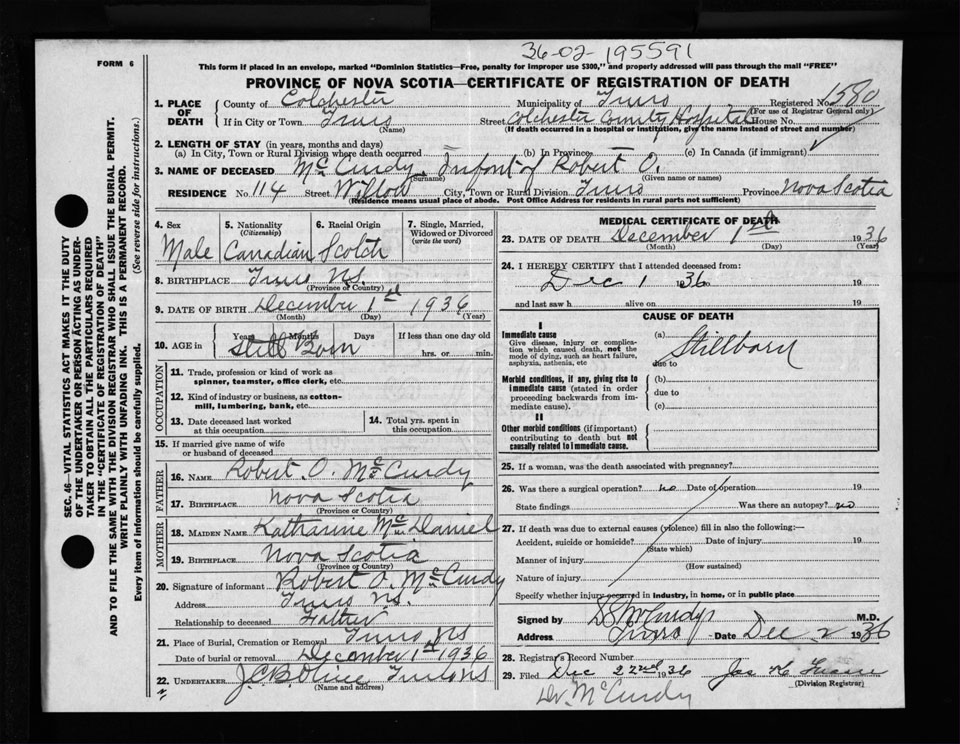 36-02-195591
FORM 6
This form if placed in an envelope, marked "Dominion Statistics—Free, penalty for improper use $300," and properly addressed will pass through the mail "FREE"
PROVINCE OF NOVA SCOTIA—CERTIFICATE OF REGISTRATION OF DEATH
1. PLACE OF DEATH
County of Colchester Municipality of Truro Registered No. 1580
(For use of Registrar General only)
If in City or Town Truro Street Colchester County Hospital House No.
(Name) (If death occurred in a hospital or institution, give the name instead of street and number)
2. LENGTH OF STAY (in years, months and days)
(a) In City, Town or Rural Division where death occurred (b) In Province (c) In Canada (if immigrant)
3. NAME OF DECEASED McCurdy, Infant of Robert O.
(Surname) (Given name or names)
RESIDENCE No. 114 Street Willow City, Town or Rural Division Truro Province Nova Scotia
(Residence means usual place of abode. Post Office Address for residents in rural parts not sufficient)
4. Sex Male
5. Nationality (Citizenship) Canadian
6. Racial Origin Scotch
7. Single, Married, Widowed or Divorced (write the word)
8. BIRTHPLACE Truro N.S.
(Province or Country)
9. DATE OF BIRTH December 1st 1936
(Month) (Day) (Year)
10. AGE in Years Months Days If less than one day
Still Born hrs. or min.
OCCUPATION
11. Trade, profession or kind of work as spinner, teamster, office clerk, etc.
12. Kind of industry or business, as cotton-mill, lumbering, bank, etc.
13. Date deceased last worked at this occupation
14. Total yrs. spent in this occupation
15. If married give name of wife or husband of deceased
FATHER
16. NAME Robert O. McCurdy
17. BIRTHPLACE Nova Scotia
(Province or Country)
MOTHER
18. MAIDEN NAME Katharine McDaniel
19. BIRTHPLACE Nova Scotia
(Province or Country)
20. Signature of informant Robert O. McCurdy
Address Truro N.S.
Relationship to deceased Father
21. Place of Burial, Cremation or Removal Truro NS
Date of burial or removal December 1st 1936
22. UNDERTAKER
(Name and address)
MEDICAL CERTIFICATE OF DEATH
23. DATE OF DEATH December 1st 1936
(Month) (Day) (Year)
24. I HEREBY CERTIFY that I attended deceased from:
Dec 1 1936 19
and last saw h alive on 19
CAUSE OF DEATH
I
Immediate cause
Give disease, injury or complication which caused death, not the mode of dying, such as heart failure, asphyxia, asthenia, etc
(a) Stillborn
due to
Morbid conditions, if any, giving rise to immediate cause (stated in order proceeding backwards from immediate cause).
(b)
due to
(c)
II
Other morbid conditions (if important) contributing to death but not causally related to immediate cause.
25. If a woman, was the death associated with pregnancy?
26. Was there a surgical operation? no Date of operation 19
State findings Was there an autopsy? no
27. If death was due to external causes (violence) fill in also the following:—
Accident, suicide or homicide? Date of injury 19
(State which)
Manner of injury
(How sustained)
Nature of injury
Specify whether injury occurred in industry, in home, or in public place
Signed by McCurdy M.D.
Address Truro Date Dec 2 1936
28. Registrar's Record Number
29. Filed Dec 22nd 1936
(Division Registrar)
Dr. McCurdy
SEC. 46—VITAL STATISTICS ACT MAKES IT THE DUTY
OF THE UNDERTAKER OR PERSON ACTING AS UNDER-
TAKER TO OBTAIN ALL THE PARTICULARS REQUIRED
IN THE "CERTIFICATE OF REGISTRATION OF DEATH"
AND TO FILE THE SAME WITH THE DIVISION REGISTRAR WHO SHALL ISSUE THE BURIAL PERMIT.
WRITE PLAINLY WITH UNFADING INK. THIS IS A PERMANENT RECORD.
Every item of information should be carefully supplied. (See reverse side for instructions.)